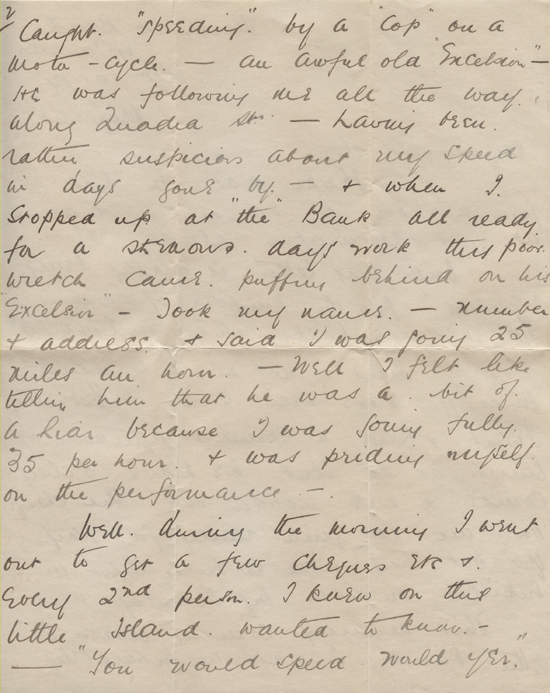 2
Caught. "speeding". by a "cop" on a
moto-cycle. — an awful old "Excelsior" —
He was following me all the way.
along Quadra St. — having been.
rather suspicious about my speed
in days gone by. — & when I.
stopped up at "the" Bank all ready
for a strenous. days work this poor.
wretch came. puffing behind on his
"Excelsior" — Took my name. — number
& address. & said I was going 25
miles an hour. — Well I felt like
telling him that he was a. bit of.
a liar because I was going fully.
35 per hour. & was priding myself.
on the performance —.
Well. during the morning I went
out to get a few cheques etc &.
Every 2nd person. I knew on this
little Island. wanted to know. —
— "You would speed would yer."